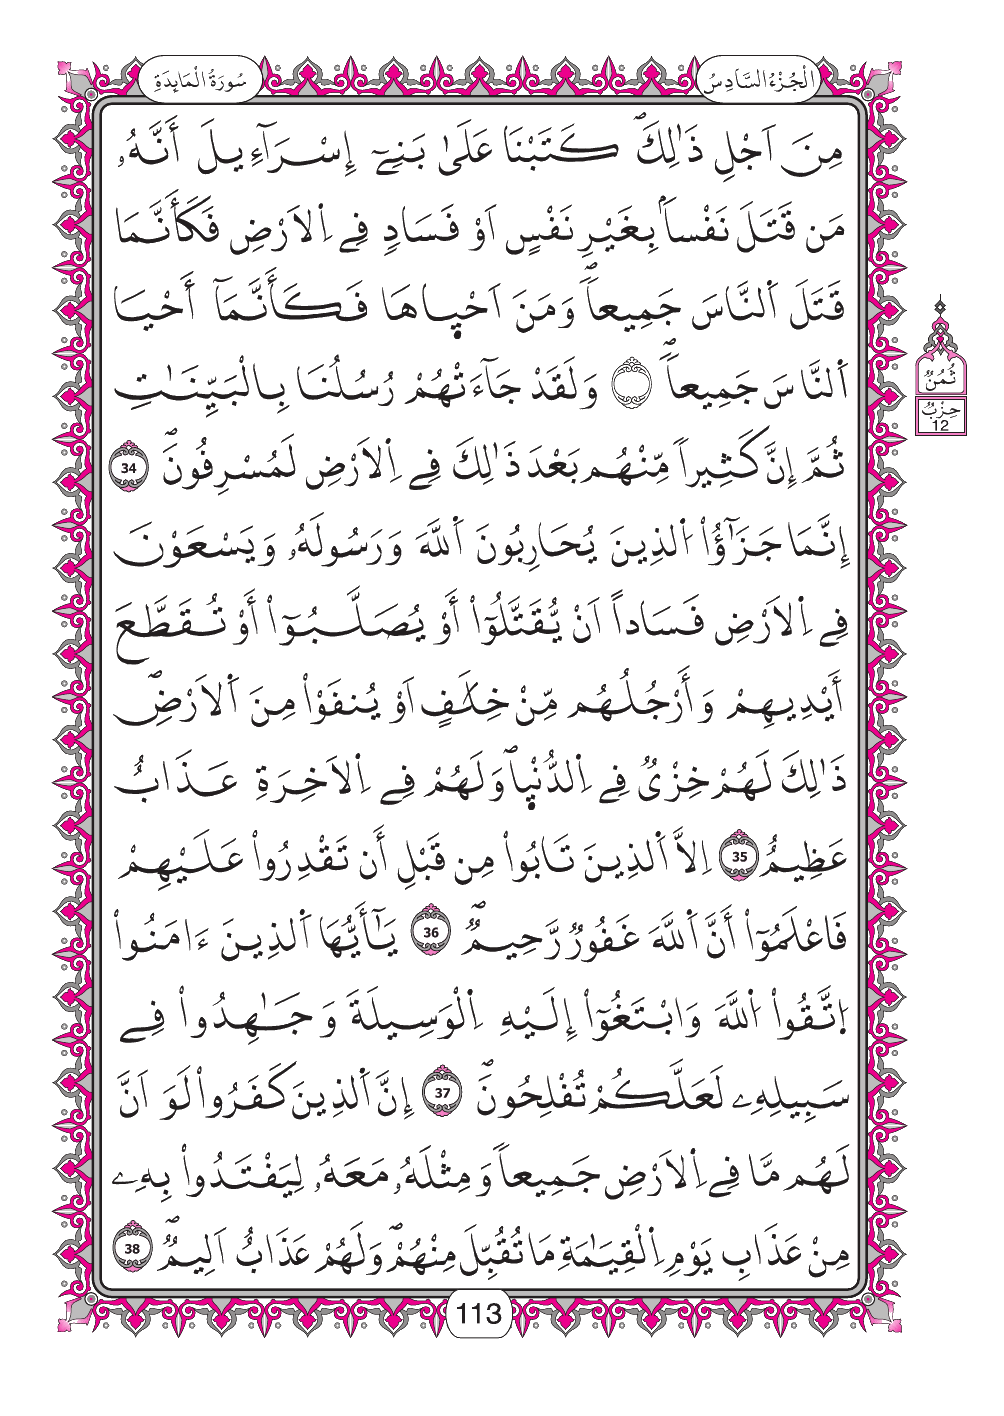 الْجُزْءُ السَّادِسُ
سُورَةُ الْمَايِدَةِ
مِنَ اَجْلِ ذَٰلِكَۖ كَتَبْنَا عَلَىٰ بَنِےٓ إِسْرَآءِيلَ أَنَّهُۥ
مَن قَتَلَ نَفْساَۢ بِغَيْرِ نَفْسٍ اَوْ فَسَادٍ فِے اِ۬لَارْضِ فَكَأَنَّمَا
قَتَلَ اَ۬لنَّاسَ جَمِيعاٗۖ وَمَنَ اَحْي۪اهَا فَكَأَنَّمَآ أَحْيَا
اَ۬لنَّاسَ جَمِيعاٗۖ وَلَقَدْ جَآءَتْهُمْ رُسُلُنَا بِالْبَيِّنَٰتِ
ثُمَّ إِنَّ كَثِيراٗ مِّنْهُم بَعْدَ ذَٰلِكَ فِے اِ۬لَارْضِ لَمُسْرِفُونَۖ 34
إِنَّمَا جَزَٰٓؤُاْ اُ۬لذِينَ يُحَارِبُونَ اَ۬للَّهَ وَرَسُولَهُۥ وَيَسْعَوْنَ
فِے اِ۬لَارْضِ فَسَاداً اَنْ يُّقَتَّلُوٓاْ أَوْ يُصَلَّبُوٓاْ أَوْ تُقَطَّعَ
أَيْدِيهِمْ وَأَرْجُلُهُم مِّنْ خِلَٰفٍ اَوْ يُنفَوْاْ مِنَ اَ۬لَارْضِۖ
ذَٰلِكَ لَهُمْ خِزْيٌ فِے اِ۬لدُّنْي۪اۖ وَلَهُمْ فِے اِ۬لَاخِرَةِ عَذَابٌ
عَظِيمٌ 35 اِلَّا اَ۬لذِينَ تَابُواْ مِن قَبْلِ أَن تَقْدِرُواْ عَلَيْهِمْ
فَاعْلَمُوٓاْ أَنَّ اَ۬للَّهَ غَفُورٌ رَّحِيمٌۖ 36 يَٰٓأَيُّهَا اَ۬لذِينَ ءَامَنُواْ
اُ۪تَّقُواْ اُ۬للَّهَ وَابْتَغُوٓاْ إِلَيْهِ اِ۬لْوَسِيلَةَ وَجَٰهِدُواْ فِے
سَبِيلِهِۦ لَعَلَّكُمْ تُفْلِحُونَۖ 37 إِنَّ اَ۬لذِينَ كَفَرُواْ لَوَ اَنَّ
لَهُم مَّا فِے اِ۬لَارْضِ جَمِيعاٗ وَمِثْلَهُۥ مَعَهُۥ لِيَفْتَدُواْ بِهِۦ
مِنْ عَذَابِ يَوْمِ اِ۬لْقِيَٰمَةِ مَا تُقُبِّلَ مِنْهُمْۖ وَلَهُمْ عَذَابٌ اَلِيمٌۖ 38
ثُمُنٌ
حِزْبٌ
12
113